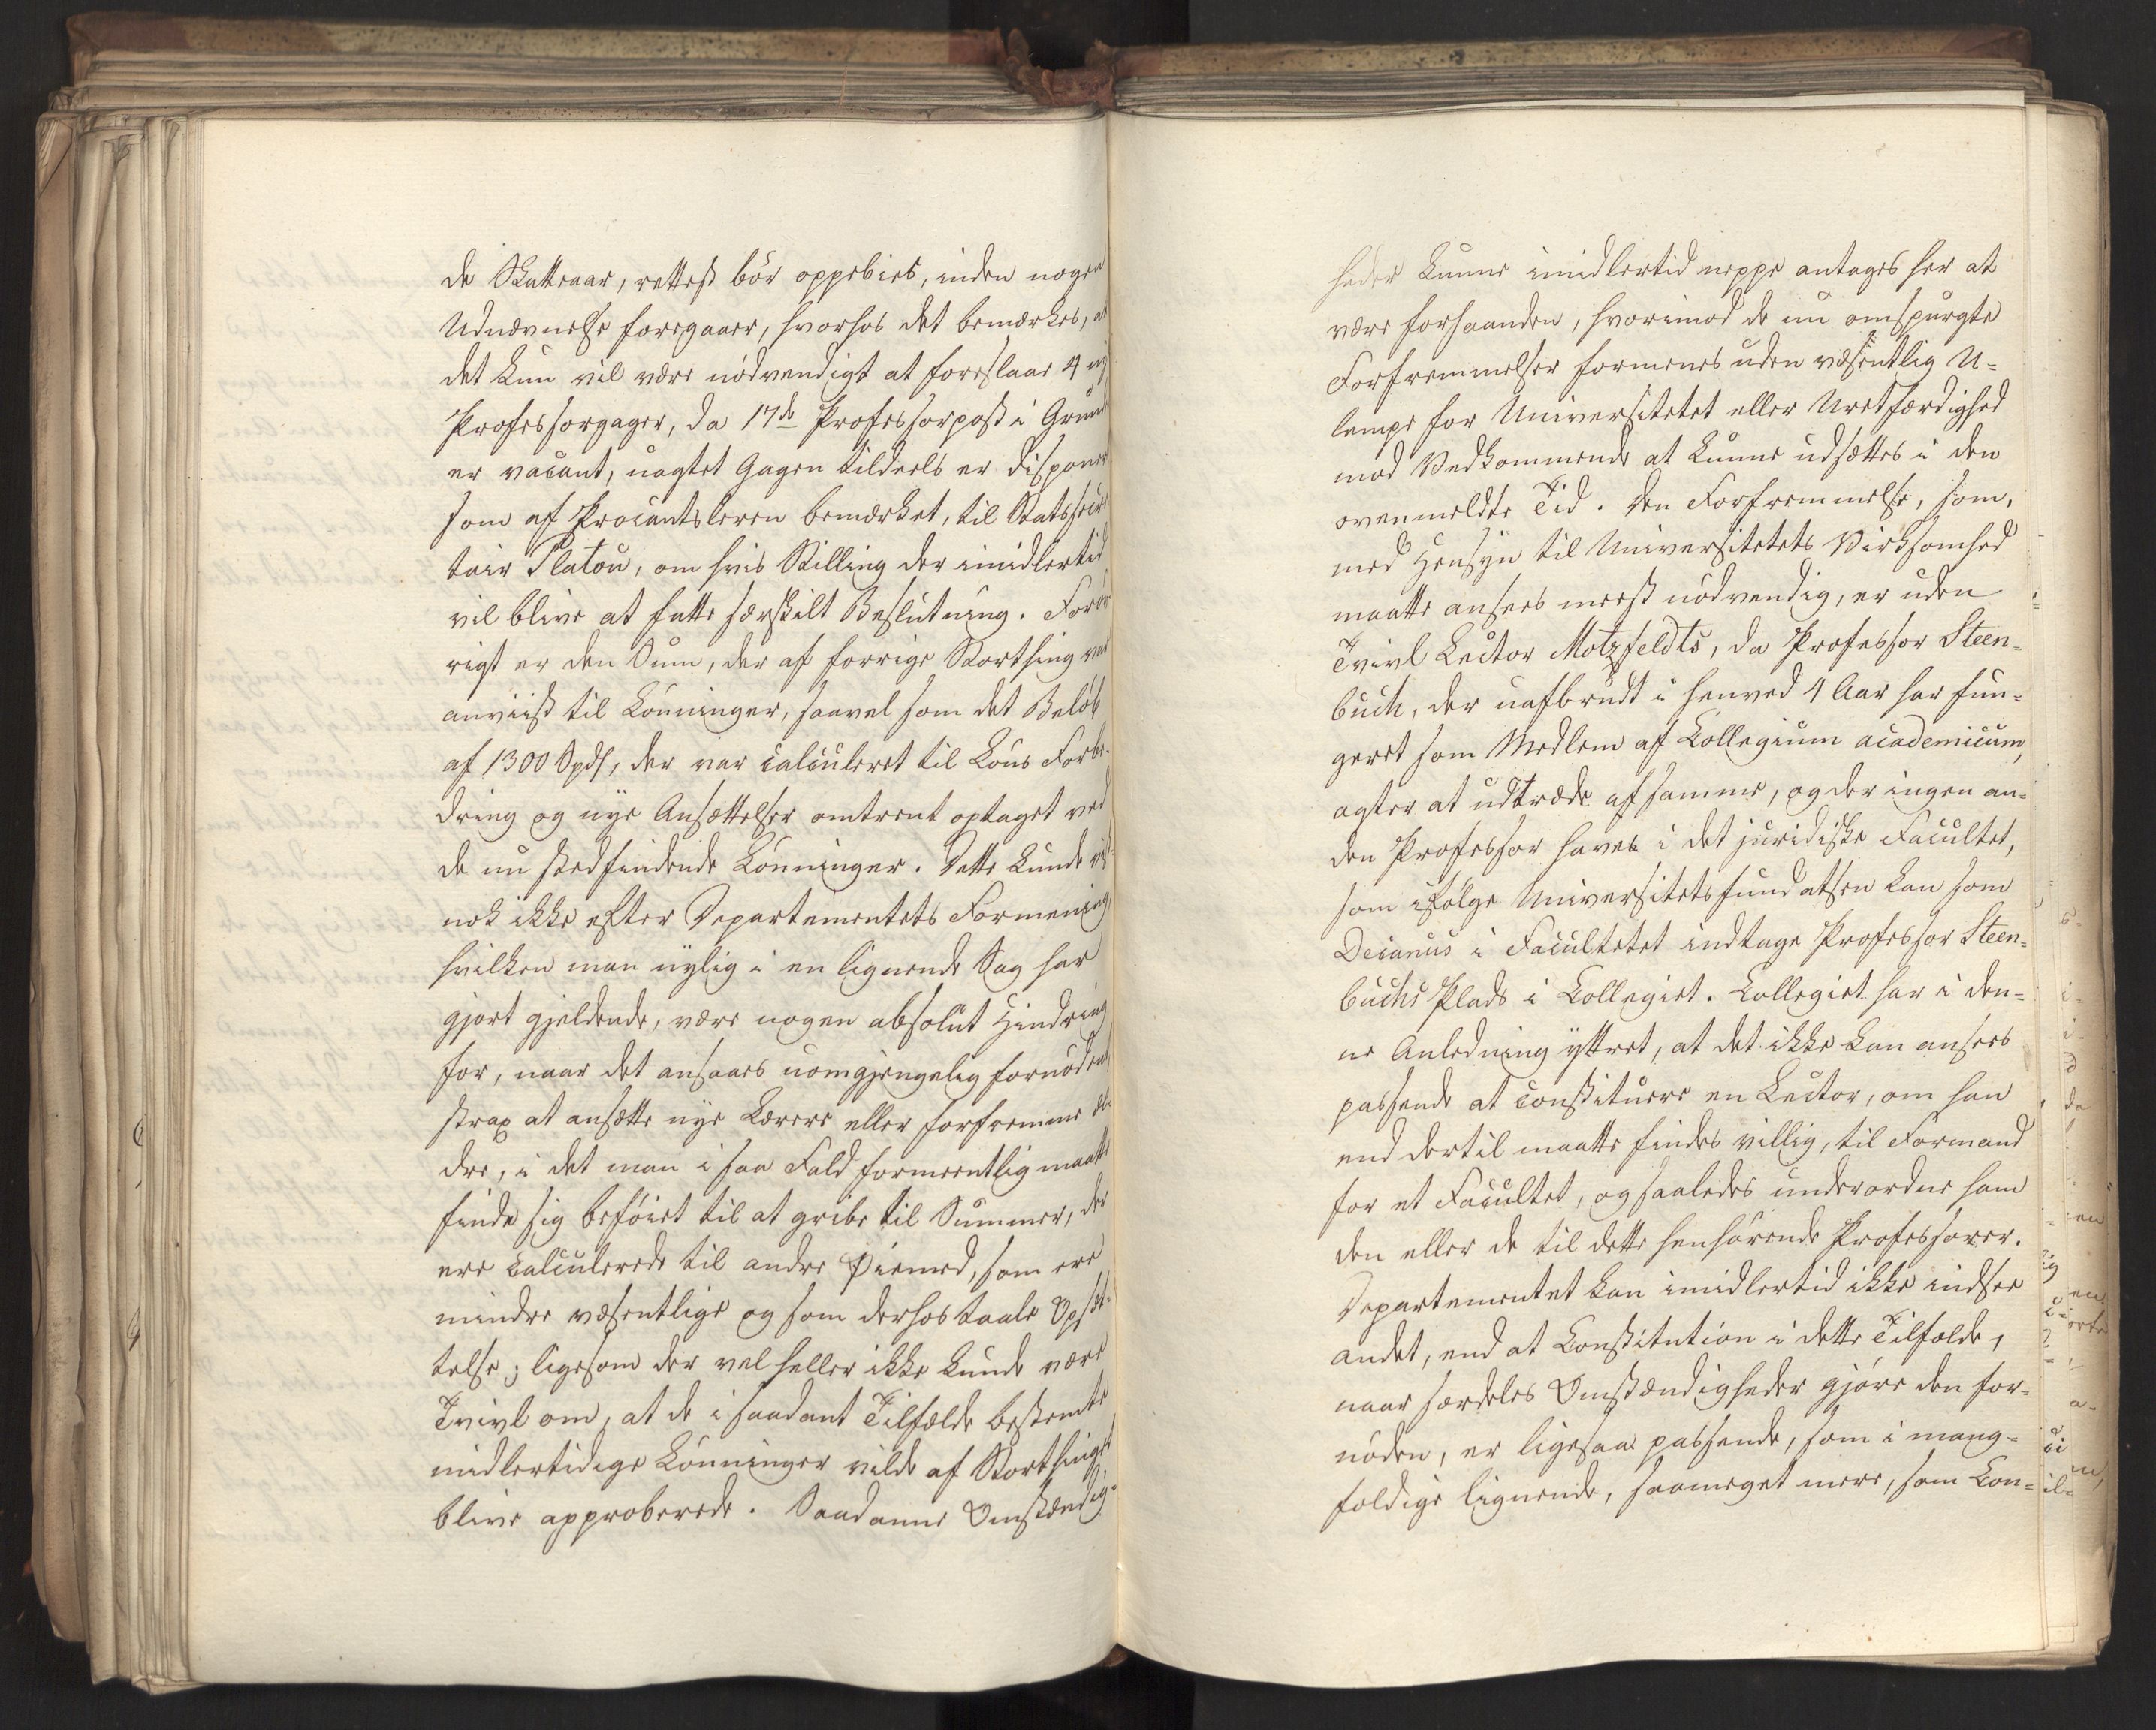 de Skatteaar, rettest bör oppebies, inden nogen
Udnævnelse foregaaer, hvorhos det bemærkes, at
det kun vil være nödvendigt at foreslaae 4 nye
Professorgager, da 17de Professorpost i Grun
er vacant, uagtet Gagen tildeels er disponer
som af Procantsleren bemærket, til Statssecre
tair Platou, om hvis Stilling der imidlertid
vil blive at fatte særskilt Beslutning. Forö
rigt er den Sum, der af forrige Storthing var
anviist til Lönninger, saavel som det Belöb
af 1300 Spdl, der var calculeret til Löns Forbe-
dring og nye Ansættelser omtrent optaget ved
de nu stedfindende Lönninger. Dette kunde vist
nok ikke efter Departementets Formening
hvilken man nylig i en lignende Sag har
gjort gjeldende, være nogen absolut Hindring
for, naar det ansaaes uomgjengelig fornöden
strax at ansætte nye Lærere eller forfremme æl-
dre, i det man i saa Fald formeentlig maatte
finde sig beföiet til at gribe til Summer, der
ere calculerede til andre Öiemed, som ere
mindre væsentlige og som derhos taale Opsæt-
telse; ligesom der vel heller ikke kunde være
Tvivl om, at de i saadant Tilfælde bestemte
midlertidige Lönninger vilde af Storthinget
blive approberede. Saadanne Omstændig-
heder kunne imidlertid neppe antages her at
være forhaanden, hvorimod de nu omspurgte
Forfremmelser formenes uden væsentlig U-
lempe for Universitetet eller Uretfærdighed
mod Vedkommende at kunne udsættes i den
ovenmeldte Tid. Den Forfremmelse, som,
med Hensyn til Universitetets Virksomhed
maatte ansees meest nödvendig, er uden
Tvivl Lector Motzfeldts, da Professor Steen-
buch, der uafbrudt i henved 4 Aar har fun-
geret som Medlem af Collegium academicum,
agter at udtræde af samme, og der ingen an-
den Professor haves i det juridiske Facultet,
som ifölge Universitetsfundatsen kan som
Decanus i Facultetet indtage Professor Steen-
buchs Plads i Collegiet. Collegiet har i den-
ne Anledning yttret, at det ikke kan ansees
passende at constituere en Lector, om han
end dertil maatte findes villig, til Formand
for et Facultet, og saaledes underordne ham
den eller de til dette henhörende Professorer.
Departementet kan imidlertid ikke indsee
andet, end at Constitution i dette Tilfælde,
naar særdeles Omstændigheder gjöre den for-
nöden, er ligesaa passende, som i mang-
foldige lignende, saameget mere, som Con-